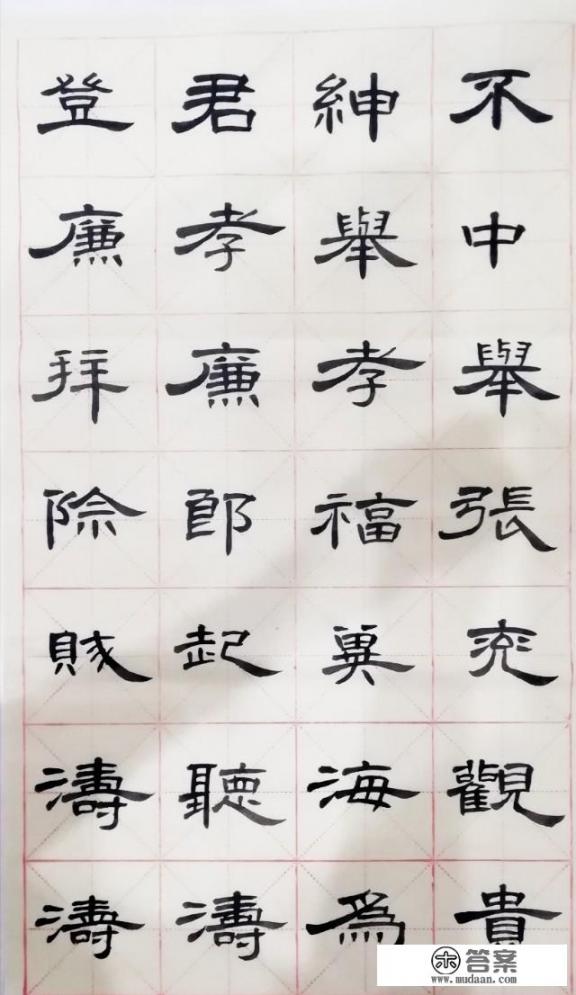 不中舉張觀貴
紳舉孝福海為
君孝廉郎起聽濤
登廉拜除濤濤
答案
www.mudaan.com